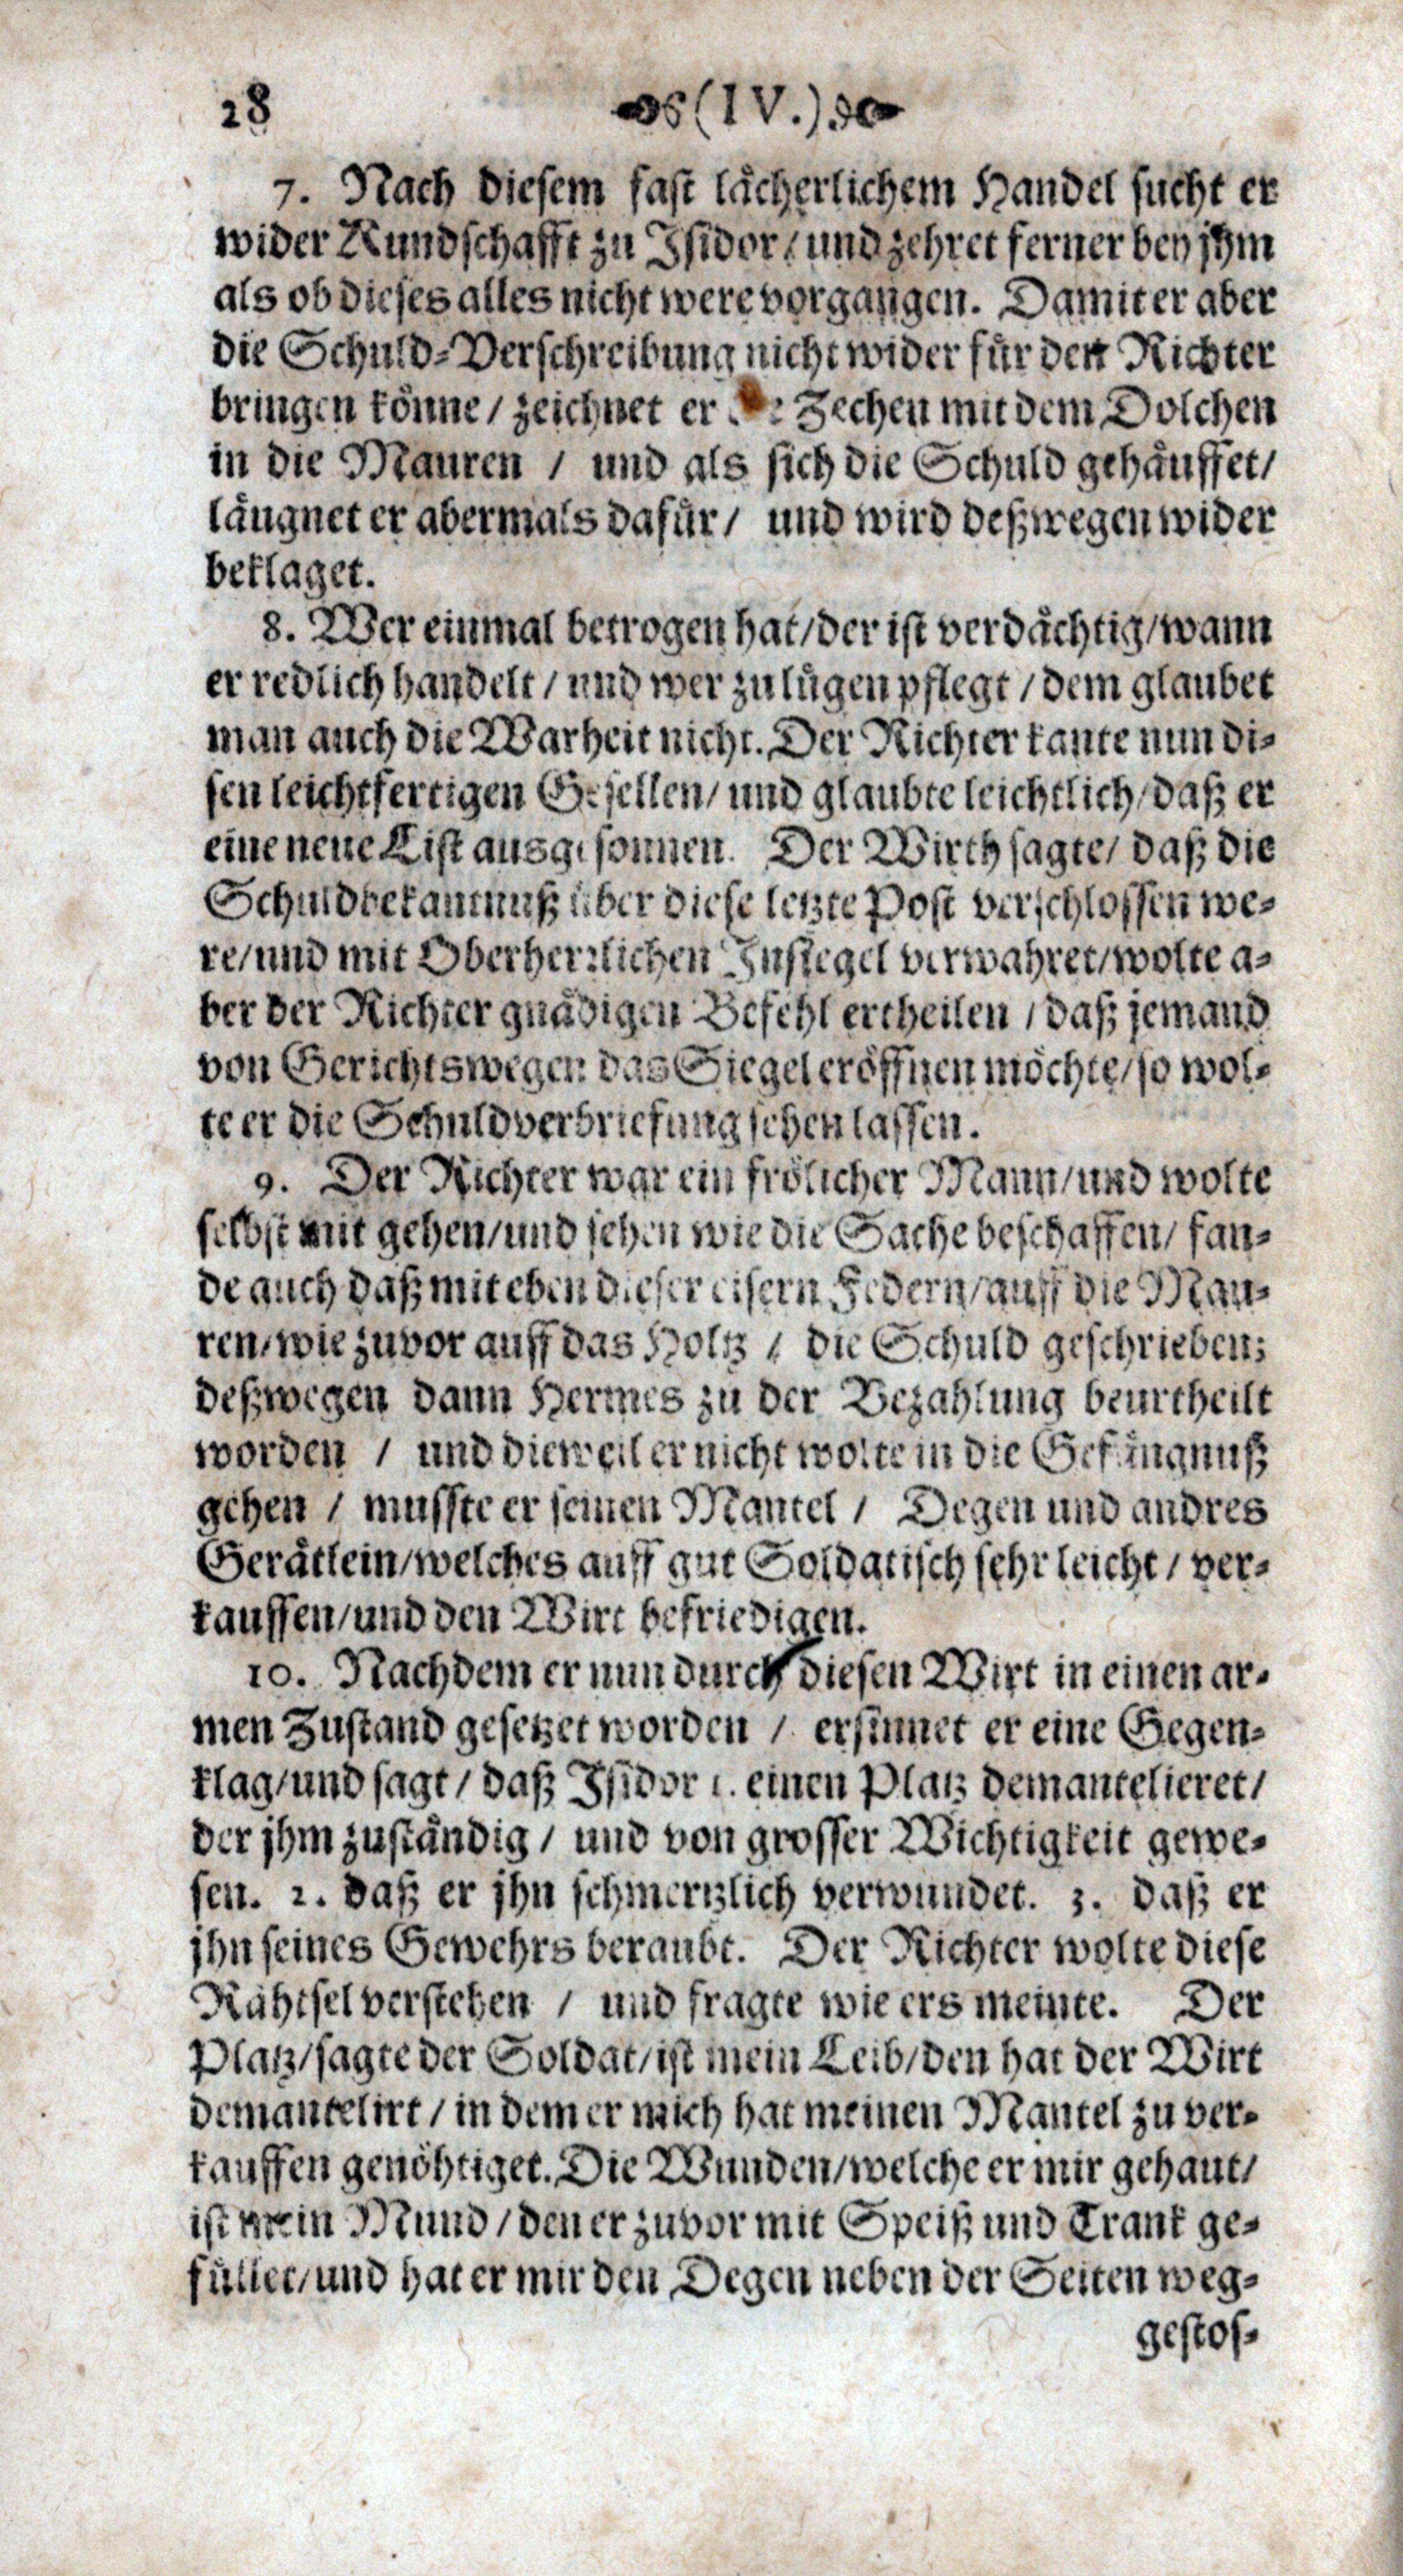 28 (IV.)
7. Nach diesem fast lächerlichem Handel sucht er
wider Kundschafft zu Isidor / und zehret ferner bey jhm
als ob dieses alles nicht were vorgangen. Damit er aber
die Schuld-Verschreibung nicht wider für den Richter
bringen könne / zeichnet er Zechen mit dem Dolchen
in die Mauren / und als sich die Schuld gehäuffet /
läugnet er abermals dafür / und wird deßwegen wider
beklaget.
8. Wer einmal betrogen hat / der ist verdächtig / wann
er redlich handelt / und wer zu lügen pflegt / dem glaubet
man auch die Warheit nicht. Der Richter kante nun di-
sen leichtfertigen Gesellen / und glaubte leichtlich / daß er
eine neue List ausgesonnen. Der Wirth sagte / daß die
Schuldbekantnuß über diese letzte Post verschlossen we-
re / und mit Oberherrlichen Insiegel verwahret / wolte a-
ber der Richter gnädigen Befehl ertheilen / daß jemand
von Gerichtswegen das Siegel eröffnen möchte / so wol-
te er die Schuldverbriefung sehen lassen.
9. Der Richter war ein frölicher Mann / und wolte
selbst mit gehen / und sehen wie die Sache beschaffen / fan-
de auch daß mit eben dieser eisern Federn / auff die Mau-
ren / wie zuvor auff das Holtz / die Schuld geschrieben;
deßwegen dann Hermes zu der Bezahlung beurtheilt
worden / und dieweil er nicht wolte in die Gefängnuß
gehen / musste er seinen Mantel / Degen und andres
Gerätlein / welches auff gut Soldatisch sehr leicht / ver-
kauffen / und den Wirt befriedigen.
10. Nachdem er nun durch diesen Wirt in einen ar-
men Zustand gesetzet worden / ersinnet er eine Gegen-
klag / und sagt / daß Isidor 1. einen Platz demantelieret /
der jhm zuständig / und von grosser Wichtigkeit gewe-
sen. 2. daß er jhn schmertzlich verwundet. 3. daß er
jhn seines Gewehrs beraubt. Der Richter wolte diese
Rähtsel verstehen / und fragte wie ers meinte. Der
Platz / sagte der Soldat / ist mein Leib / den hat der Wirt
demantelirt / in dem er mich hat meinen Mantel zu ver-
kauffen genöhtiget. Die Wunden / welche er mir gehaut /
ist mein Mund / den er zuvor mit Speiß und Trank ge-
füllet / und hat er mir den Degen neben der Seiten weg-
gestos-